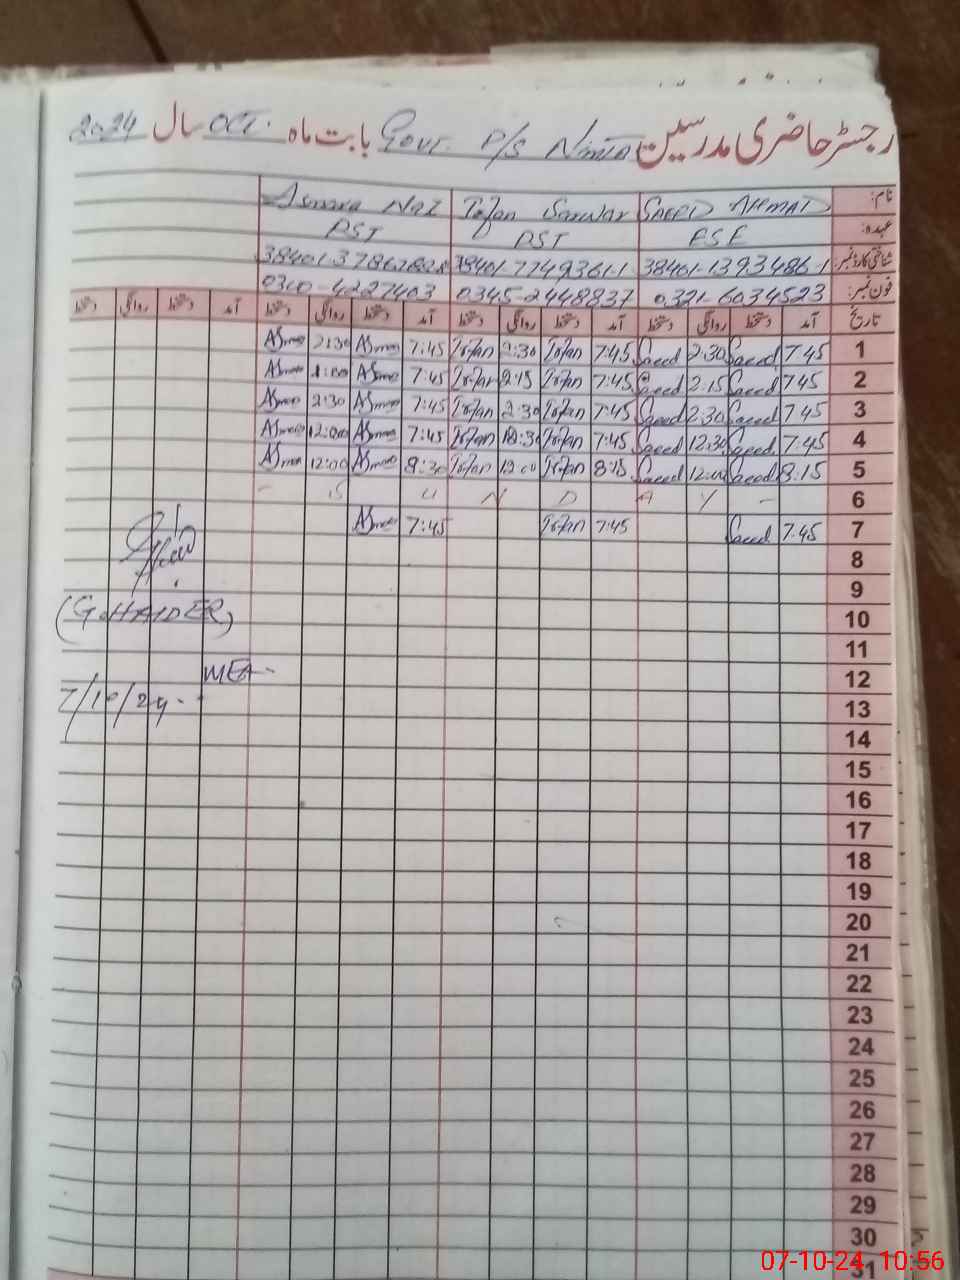 رجسٹر حاضری مدرسین Govt. P/S بابت ماہ Oct. سال 2024
نام: SAEED AHMAD Irfan Sarwar Asmara Naz
عہدہ: ESE PST PST
شناختی کارڈ نمبر: 38401-1393486-1 38401-7749361-1
فون نمبر: 0321-6034523 0345-2448837 0310-4227403
تاریخ آمد دستخط روانگی دستخط آمد دستخط روانگی دستخط آمد دستخط روانگی دستخط آمد دستخط روانگی دستخط
1 7.45 Saeed 2:30 Saeed 7:45 Irfan 2:30 Irfan 7:45 Asma 2:30 Asma
2 7 45 Saeed 2:15 Saeed 7:45 Irfan 2:15 Irfan 7:45 Asma 1:00 Asma
3 7 45 Saeed 2:30 Saeed 7:45 Irfan 2:30 Irfan 7:45 Asma 2:30 Asma
4 7.45 Saeed 12:30 Saeed 7:45 Irfan 12:30 Irfan 7:45 Asma 12:00 Asma
5 8.15 Saeed 12:00 Saeed 8:15 Irfan 12:00 Irfan 8:30 Asma 12:00 Asma
6 - S U N D A Y -
7 7.45 Saeed 7:45 Irfan 7:45 Asma
8
9
(G. HAIDER)
10
11
MEA.
12
7/10/24.
13
14
15
16
17
18
19
20
21
22
23
24
25
26
27
28
29
30
31
07-10-24, 10:56